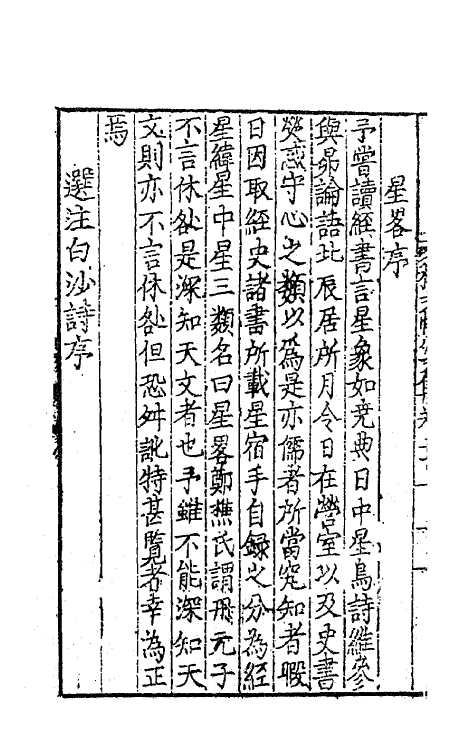 星畧序
予嘗讀經書言星象如堯典日中星鳥詩維參
與昴論語北辰居所月令日在營室以及史書
熒惑守心之類以爲是亦儒者所當究知者暇
日因取經史諸書所載星宿手自録之分為經
星緯星中星三類名曰星畧鄭樵氏謂丹元子
不言休咎是深知天文者也予雖不能深知天
文則亦不言休咎但恐舛訛特甚覽者幸為正
焉
選注白沙詩序